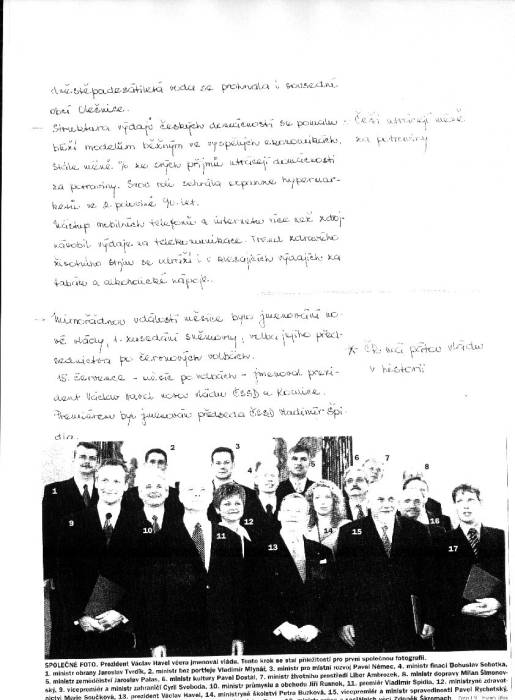 obcí Olešnice.
— Struktura výdajů českých domácností se pomalu
blíží modelům běžným ve vyspělých ekonomikách.
Stále méně % ze svých příjmů utrácejí domácnosti
za potraviny. Svou roli sehrála expanze hypermar-
ketů ve 2. polovině 90. let.
Nástup mobilních telefonů a internetu více než zdvoj-
násobil výdaje na telekomunikace. Trend zdravého
životního stylu se odráží i v
tabák a alkoholické nápoje.
- Češi utrácejí méně
za potraviny
— Mimořádnou událostí měsíce bylo jmenování no-
vé vlády, 1. zasedání sněmovny, volba jejího před-
sednictva po červnových volbách.
15. července - měsíc po volbách - jmenoval prezi-
dent Václav Havel novou vládu ČSSD a Koalice.
Premiérem byl jmenován předseda ČSSD Vladimír Špi-
dla.
* ČR má pátou vládu
v historii
1 2 3 4 5 6 7 8 9 10 11 12 13 14 15 16 17
SPOLEČNÉ FOTO. Prezident Václav Havel včera jmenoval vládu. Tento krok se stal příležitostí pro první společnou fotografii.
1. ministr obrany Jaroslav Tvrdík, 2. ministr bez portfeje Vladimír Mlynář, 3. ministr pro místní rozvoj Pavel Němec, 4. ministr financí Bohuslav Sobotka,
5. ministr zemědělství Jaroslav Palas, 6. ministr kultury Pavel Dostál, 7. ministr životního prostředí Libor Ambrozek, 8. ministr dopravy Milan Šimonov-
ský, 9. vicepremiér a ministr zahraničí Cyril Svoboda, 10. ministr průmyslu a obchodu Jiří Rusnok, 11. premiér Vladimír Špidla, 12. ministryně zdravot-
nictví Marie Součková, 13. prezident Václav Havel, 14. ministryně školství Petra Buzková, 15. vicepremiér a ministr spravedlnosti Pavel Rychetský,